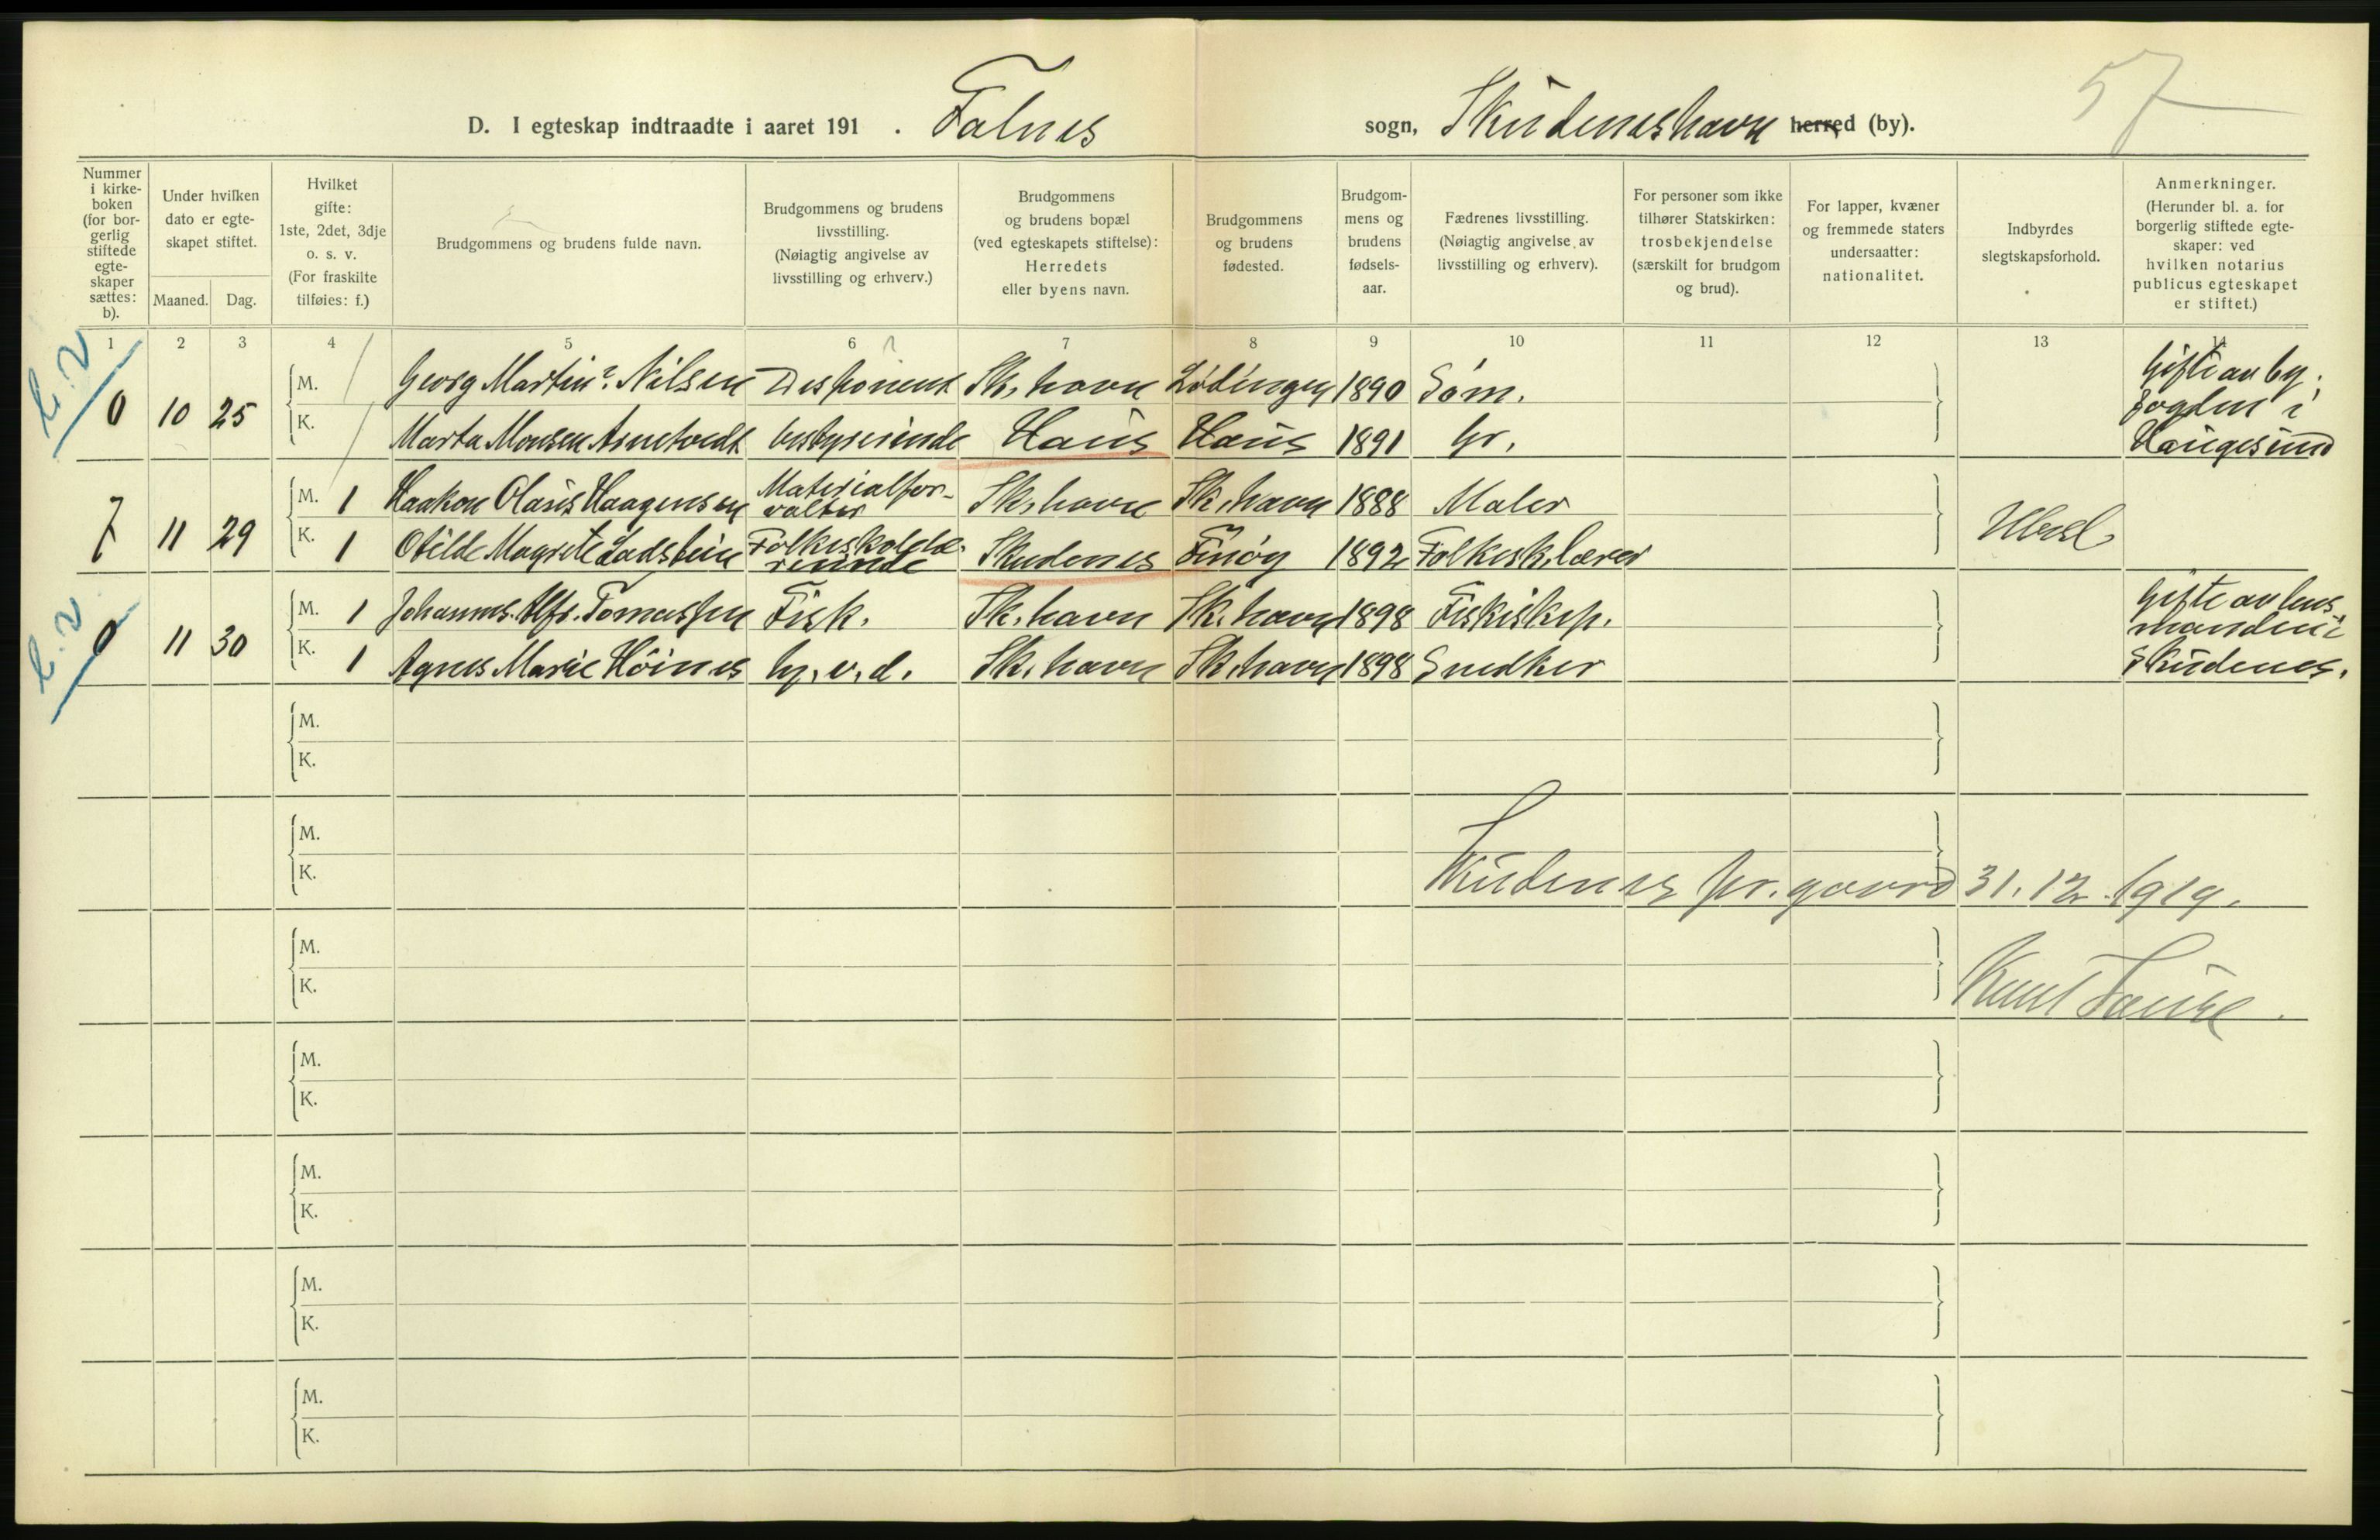 57
D. I egteskap indtraadte i aaret 191 . Falnes sogn, Skudeneshavn herred (by).
Nummer i kirkeboken (for borgerlig stiftede egteskaper sættes: b).
Under hvilken dato er egteskapet stiftet.
Maaned. Dag.
Hvilket gifte: 1ste, 2det, 3dje o. s. v. (For fraskilte tilføies: f.)
Brudgommens og brudens fulde navn.
Brudgommens og brudens livsstilling. (Nøiagtig angivelse av livsstilling og erhverv.)
Brudgommens og brudens bopæl (ved egteskapets stiftelse): Herredets eller byens navn.
Brudgommens og brudens fødested.
Brudgommens og brudens fødselsaar.
Fædrenes livsstilling. (Nøiagtig angivelse av livsstilling og erhverv).
For personer som ikke tilhører Statskirken: trosbekjendelse (særskilt for brudgom og brud).
For lapper, kvæner og fremmede staters undersaatter: nationalitet.
Indbyrdes slegtskapsforhold.
Anmerkninger. (Herunder bl. a. for borgerlig stiftede egteskaper: ved hvilken notarius publicus egteskapet er stiftet.)
1 2 3 4 5 6 7 8 9 10 11 12 13 14
0 10 25 M. Georg Martin Nilsen Disponent Sk.havn Lødingen 1890 Søm. Gifte av by.
fogden i
K. Marta Monsen Arnetvedt bestyrerinde Haus Haus 1891 Gr. Haugesund
7 11 29 M. 1 Haakon Olaus Haagensen Materialfor-
valter Sk.havn Sk.havn 1888 Maler
Ubesl.
K. 1 Otilde Magrete Ladstein Folkeskolelæ-
rerinde Skudenes Finöy 1892 Folkesk.lærer
0 11 30 M. 1 Johannes Alfr. Tomassen Fisk. Sk.havn Sk.havn 1898 Fiskeskip. Gifte av lens
manden i
K. 1 Agnes Marie Höines hj. v. d. Sk.havn Sk.havn 1898 Snedker Skudenes.
M.
K.
M.
K.
Skudenes pr.gaard 31.12.1919.
M.
K.
Knut
M.
K.
M.
K.
M.
K.
M.
K.